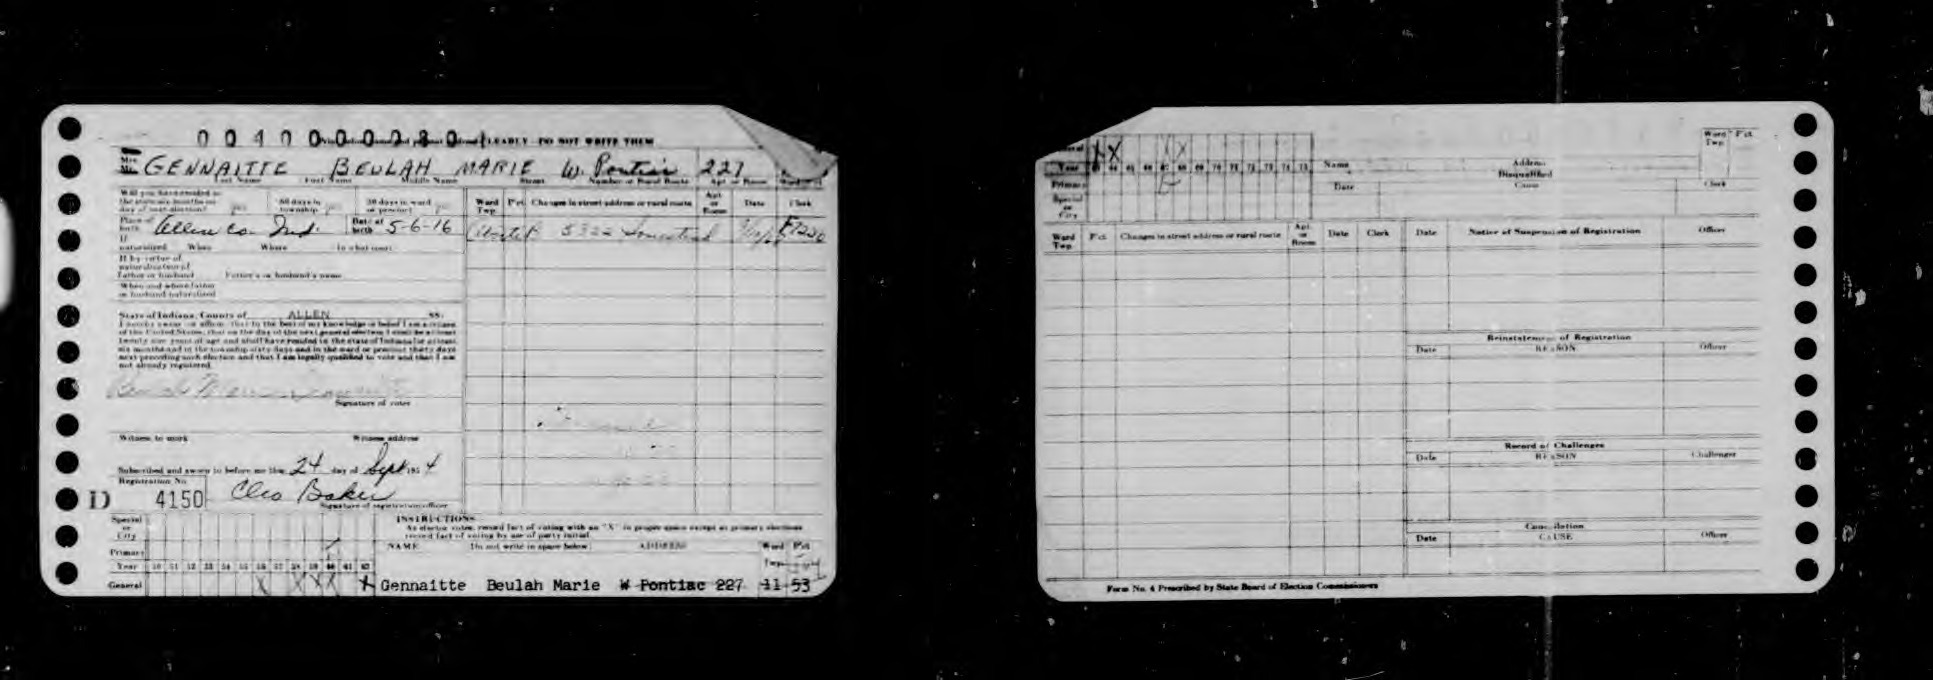 CLEARLY DO NOT WRITE THEM
Mrs. GENNAITTE BEULAH MARIE W. Pontiac 227
Last Name First Name Middle Name Street Number or Rural Route Apt. or Room
Will you have resided in
the state six months on 60 days in 30 days in ward
day of next election? township or precinct
Place of birth Allen Co. Ind. Date of birth 5-6-16
If naturalized When Where In what court
If by virtue of
naturalization of
Father or husband Father's or husband's name
When and where father
or husband naturalized
Ward Twp. P'ct. Changes in street address or rural route Apt. or Room Date Clerk
State of Indiana, County of ALLEN SS:
I hereby swear or affirm, that to the best of my knowledge or belief I am a citizen
of the United States; that on the day of the next general election I shall be at least
twenty one years of age and shall have resided in the state of Indiana for at least
six months and in the township sixty days and in the ward or precinct thirty days
next preceding such election and that I am legally qualified to vote and that I am
not already registered.
Signature of voter
Witness to mark Witness address
Subscribed and sworn to before me this 24 day of Sept 195 4
Registration No.
D 4150 Cleo Baker
Signature of registration officer
Special or City
Primary
Year 50 51 52 53 54 55 56 57 58 59 60 61 62
General X X X X X
INSTRUCTIONS
As elector votes, record fact of voting with an "X" in proper space except at primary elections
record fact of voting by use of party initial.
NAME Do not write in space below ADDRESS Ward Twp. P'ct.
Gennaitte Beulah Marie W Pontiac 227 11 53
General X X X X
Year 63 64 65 66 67 68 69 70 71 72 73 74 75
Primary
Special or City
Name Address Ward Twp. P'ct.
Disqualified
Date Cause Clerk
Ward Twp. P'ct. Changes in street address or rural route Apt. or Room Date Clerk
Date Notice of Suspension of Registration Officer
Reinstatement of Registration
Date REASON Officer
Record of Challenges
Date REASON Challenger
Cancellation
Date CAUSE Officer
Form No. 4 Prescribed by State Board of Election Commissioners